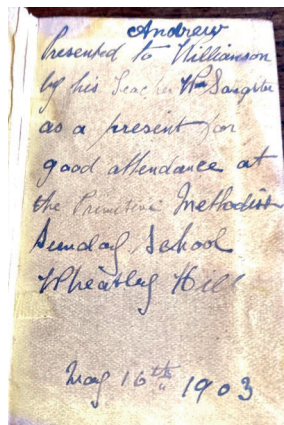 Andrew
Presented to Williamson
by his Teacher Wm Sangster
as a present for
good attendance at
the Primitive Methodist
Sunday School
Wheatley Hill
May 16th 1903